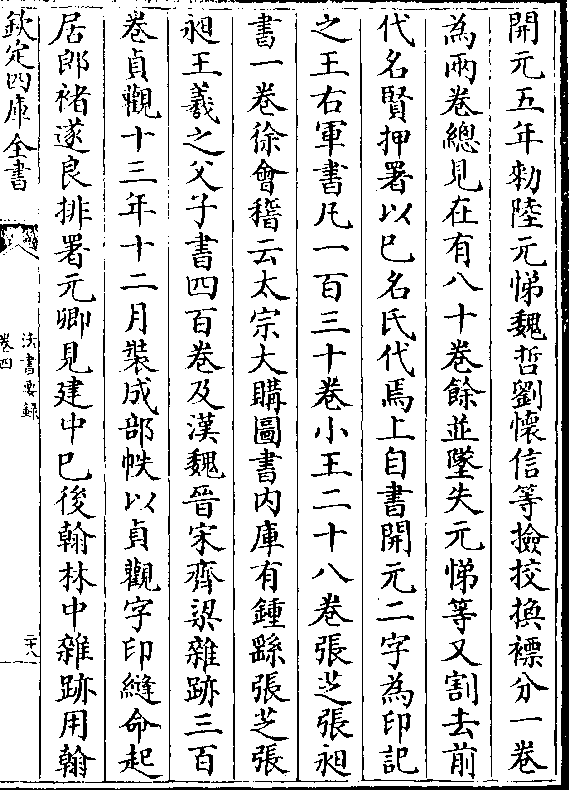 開元五年勅陸元悌魏哲劉懷信等撿挍換褾分一卷
為兩卷總見在有八十卷餘並墜失元悌等又割去前
代名賢押署以巳名氏代焉上自書開元二字為印記
之王右軍書凡一百三十卷小王二十八卷張芝張昶
書一卷徐會稽云太宗大購圖書內庫有鍾繇張芝張
昶王羲之父子書四百卷及漢魏晉宋齊梁雜跡三百
卷貞觀十三年十二月裝成部帙以貞觀字印縫命起
居郎褚遂良排署元卿見建中巳後翰林中雜跡用翰
欽定四庫全書
法書要録
卷四
二十八